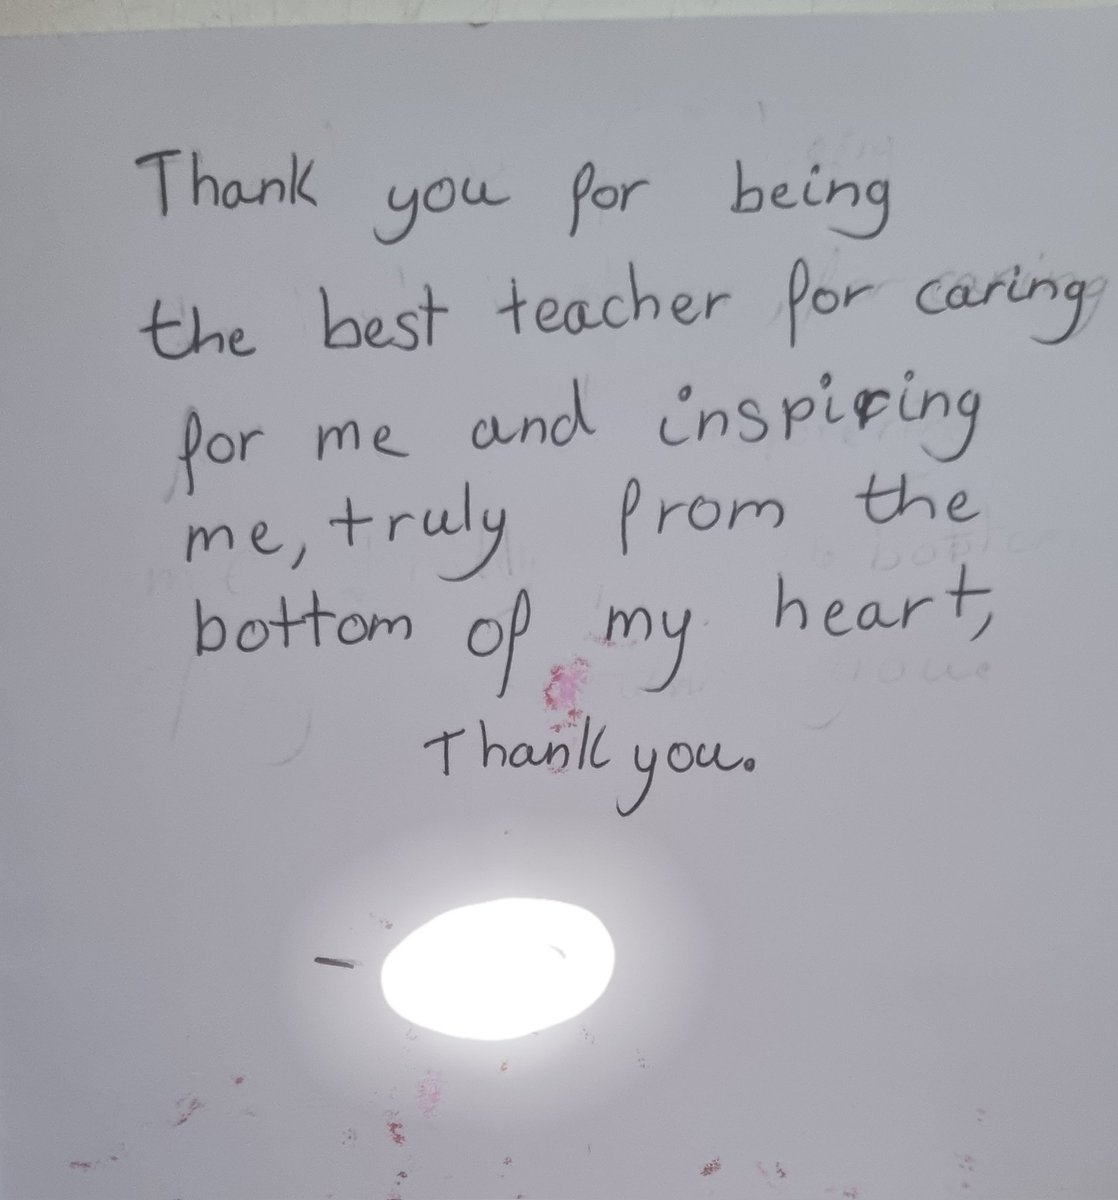 Thank you for being
the best teacher for caring
for me and inspiring
me, truly from the
bottom of my heart,
Thank you.
-